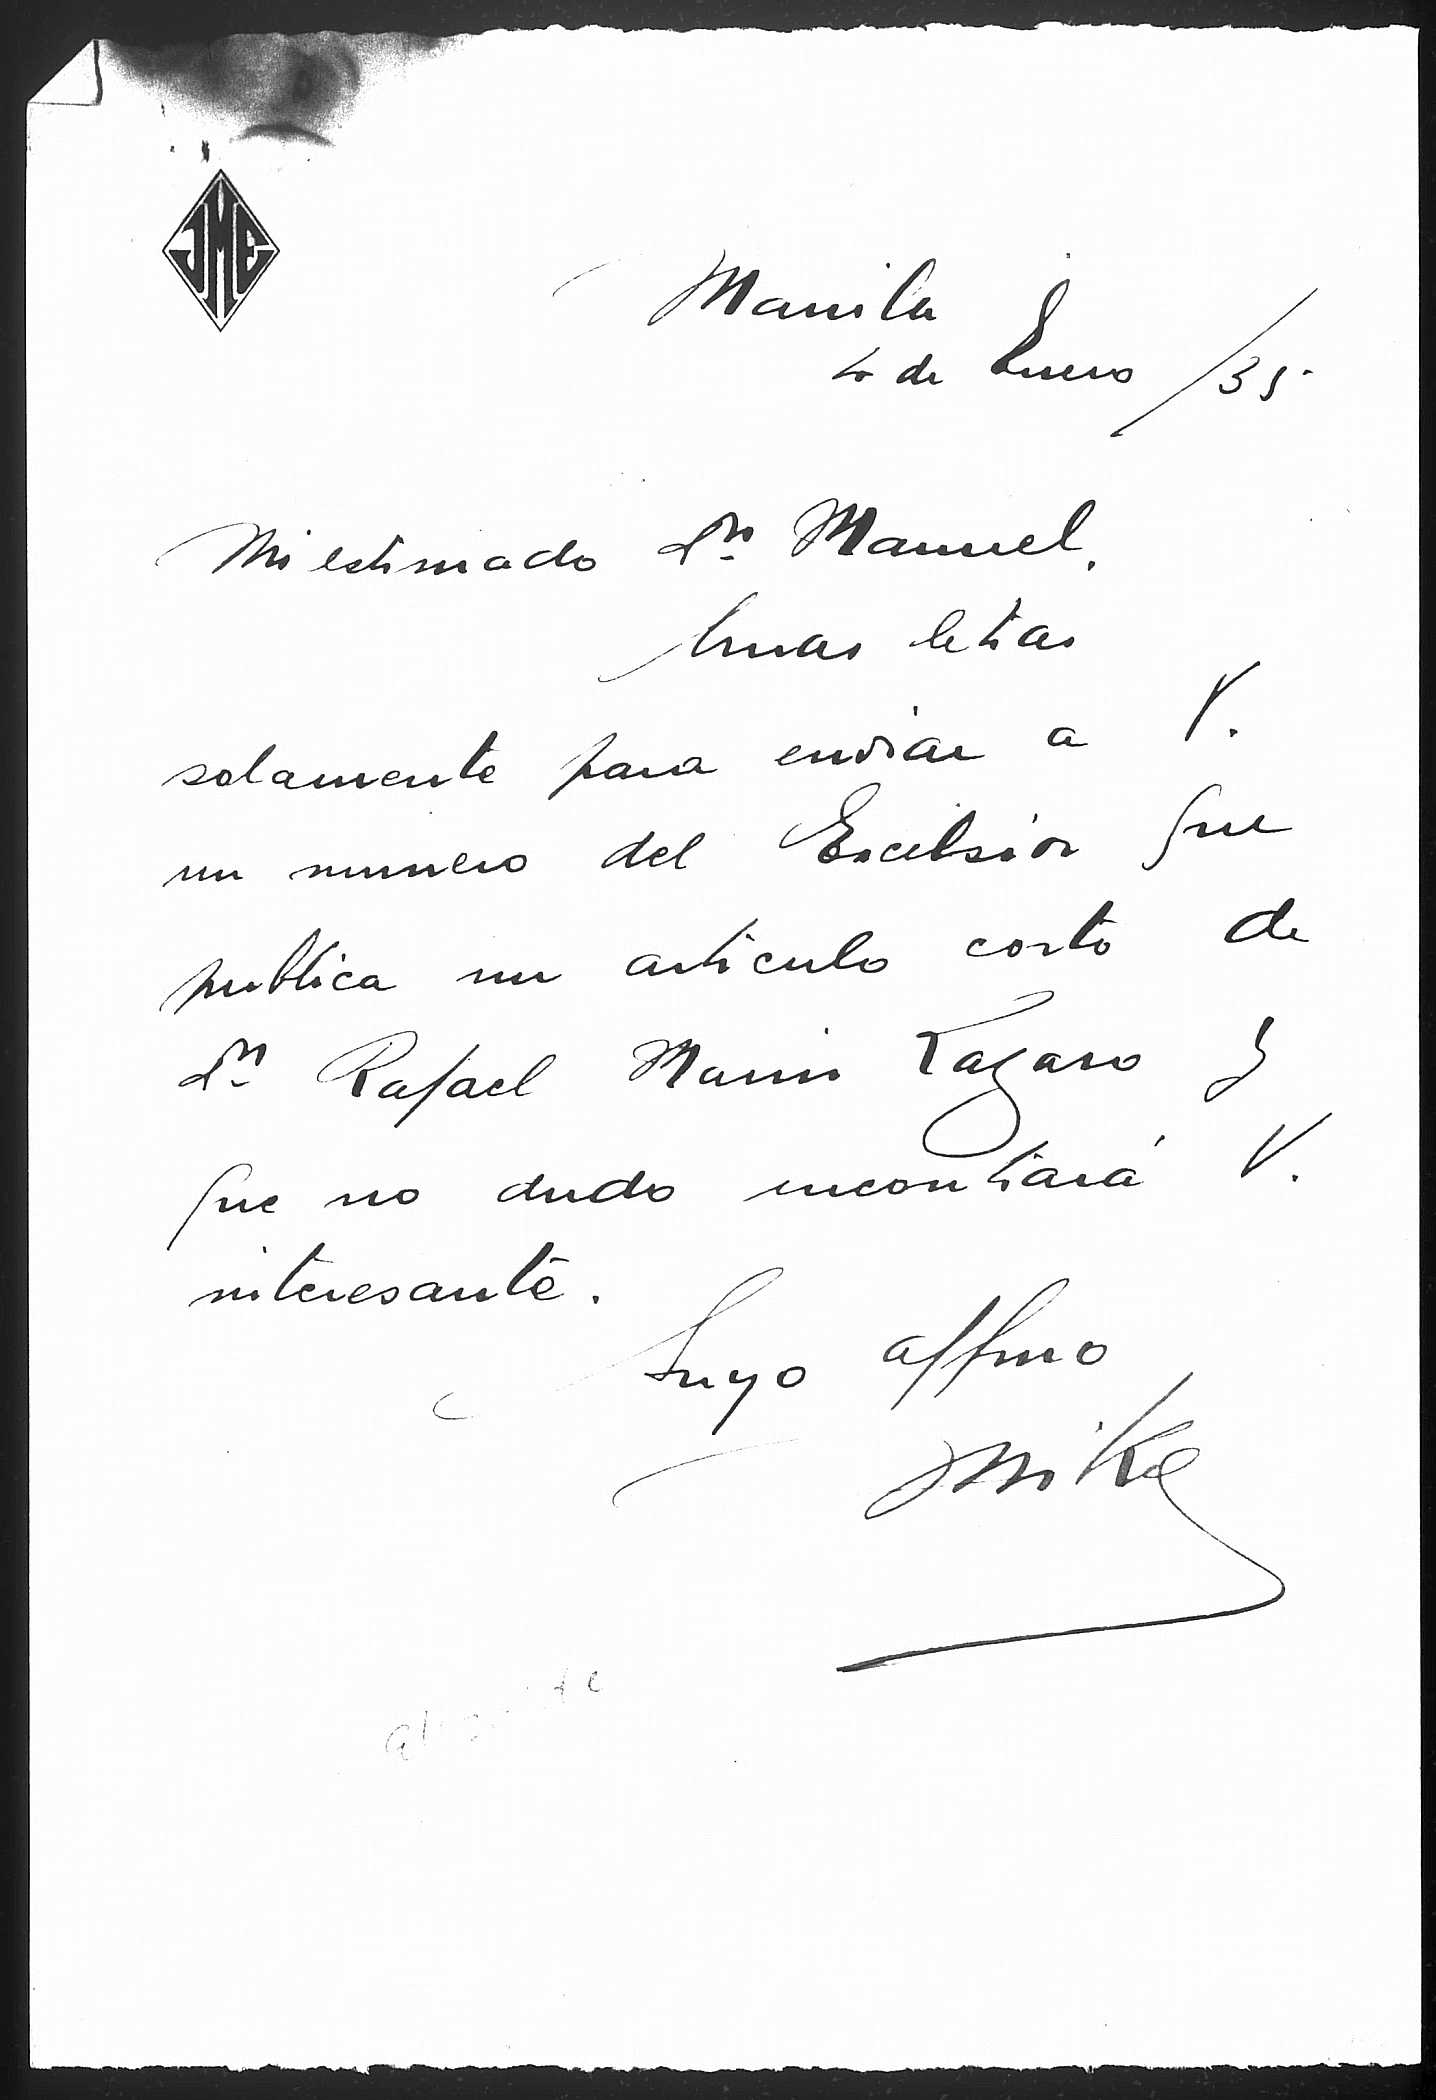 JME
Manila
4 de Enero /35.
Mi estimado Dn. Manuel,
Unas letras
solamente para enviar a V.
un numero del Excelsior que
publica un articulo corto de
Dn. Rafael Marin Lazaro y
que no dudo encontrará V.
interesante.
Suyo affmo
Mike